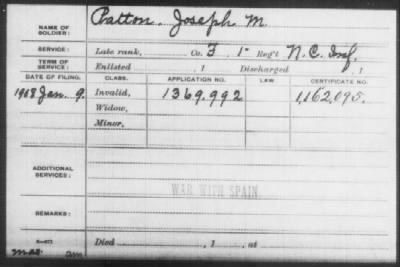 NAME OF SOLDIER: Patton, Joseph M.
SERVICE: Late rank, Co. F, 1- Reg't N.C. Inf.
TERM OF SERVICE: Enlisted , 1 Discharged , 1
DATE OF FILING. CLASS. APPLICATION NO. LAW. CERTIFICATE NO.
1908 Jan. 9. Invalid, 1369.992 1,162,095.
Widow,
Minor,
ADDITIONAL SERVICES:
WAR WITH SPAIN
REMARKS:
Died , 1 , at